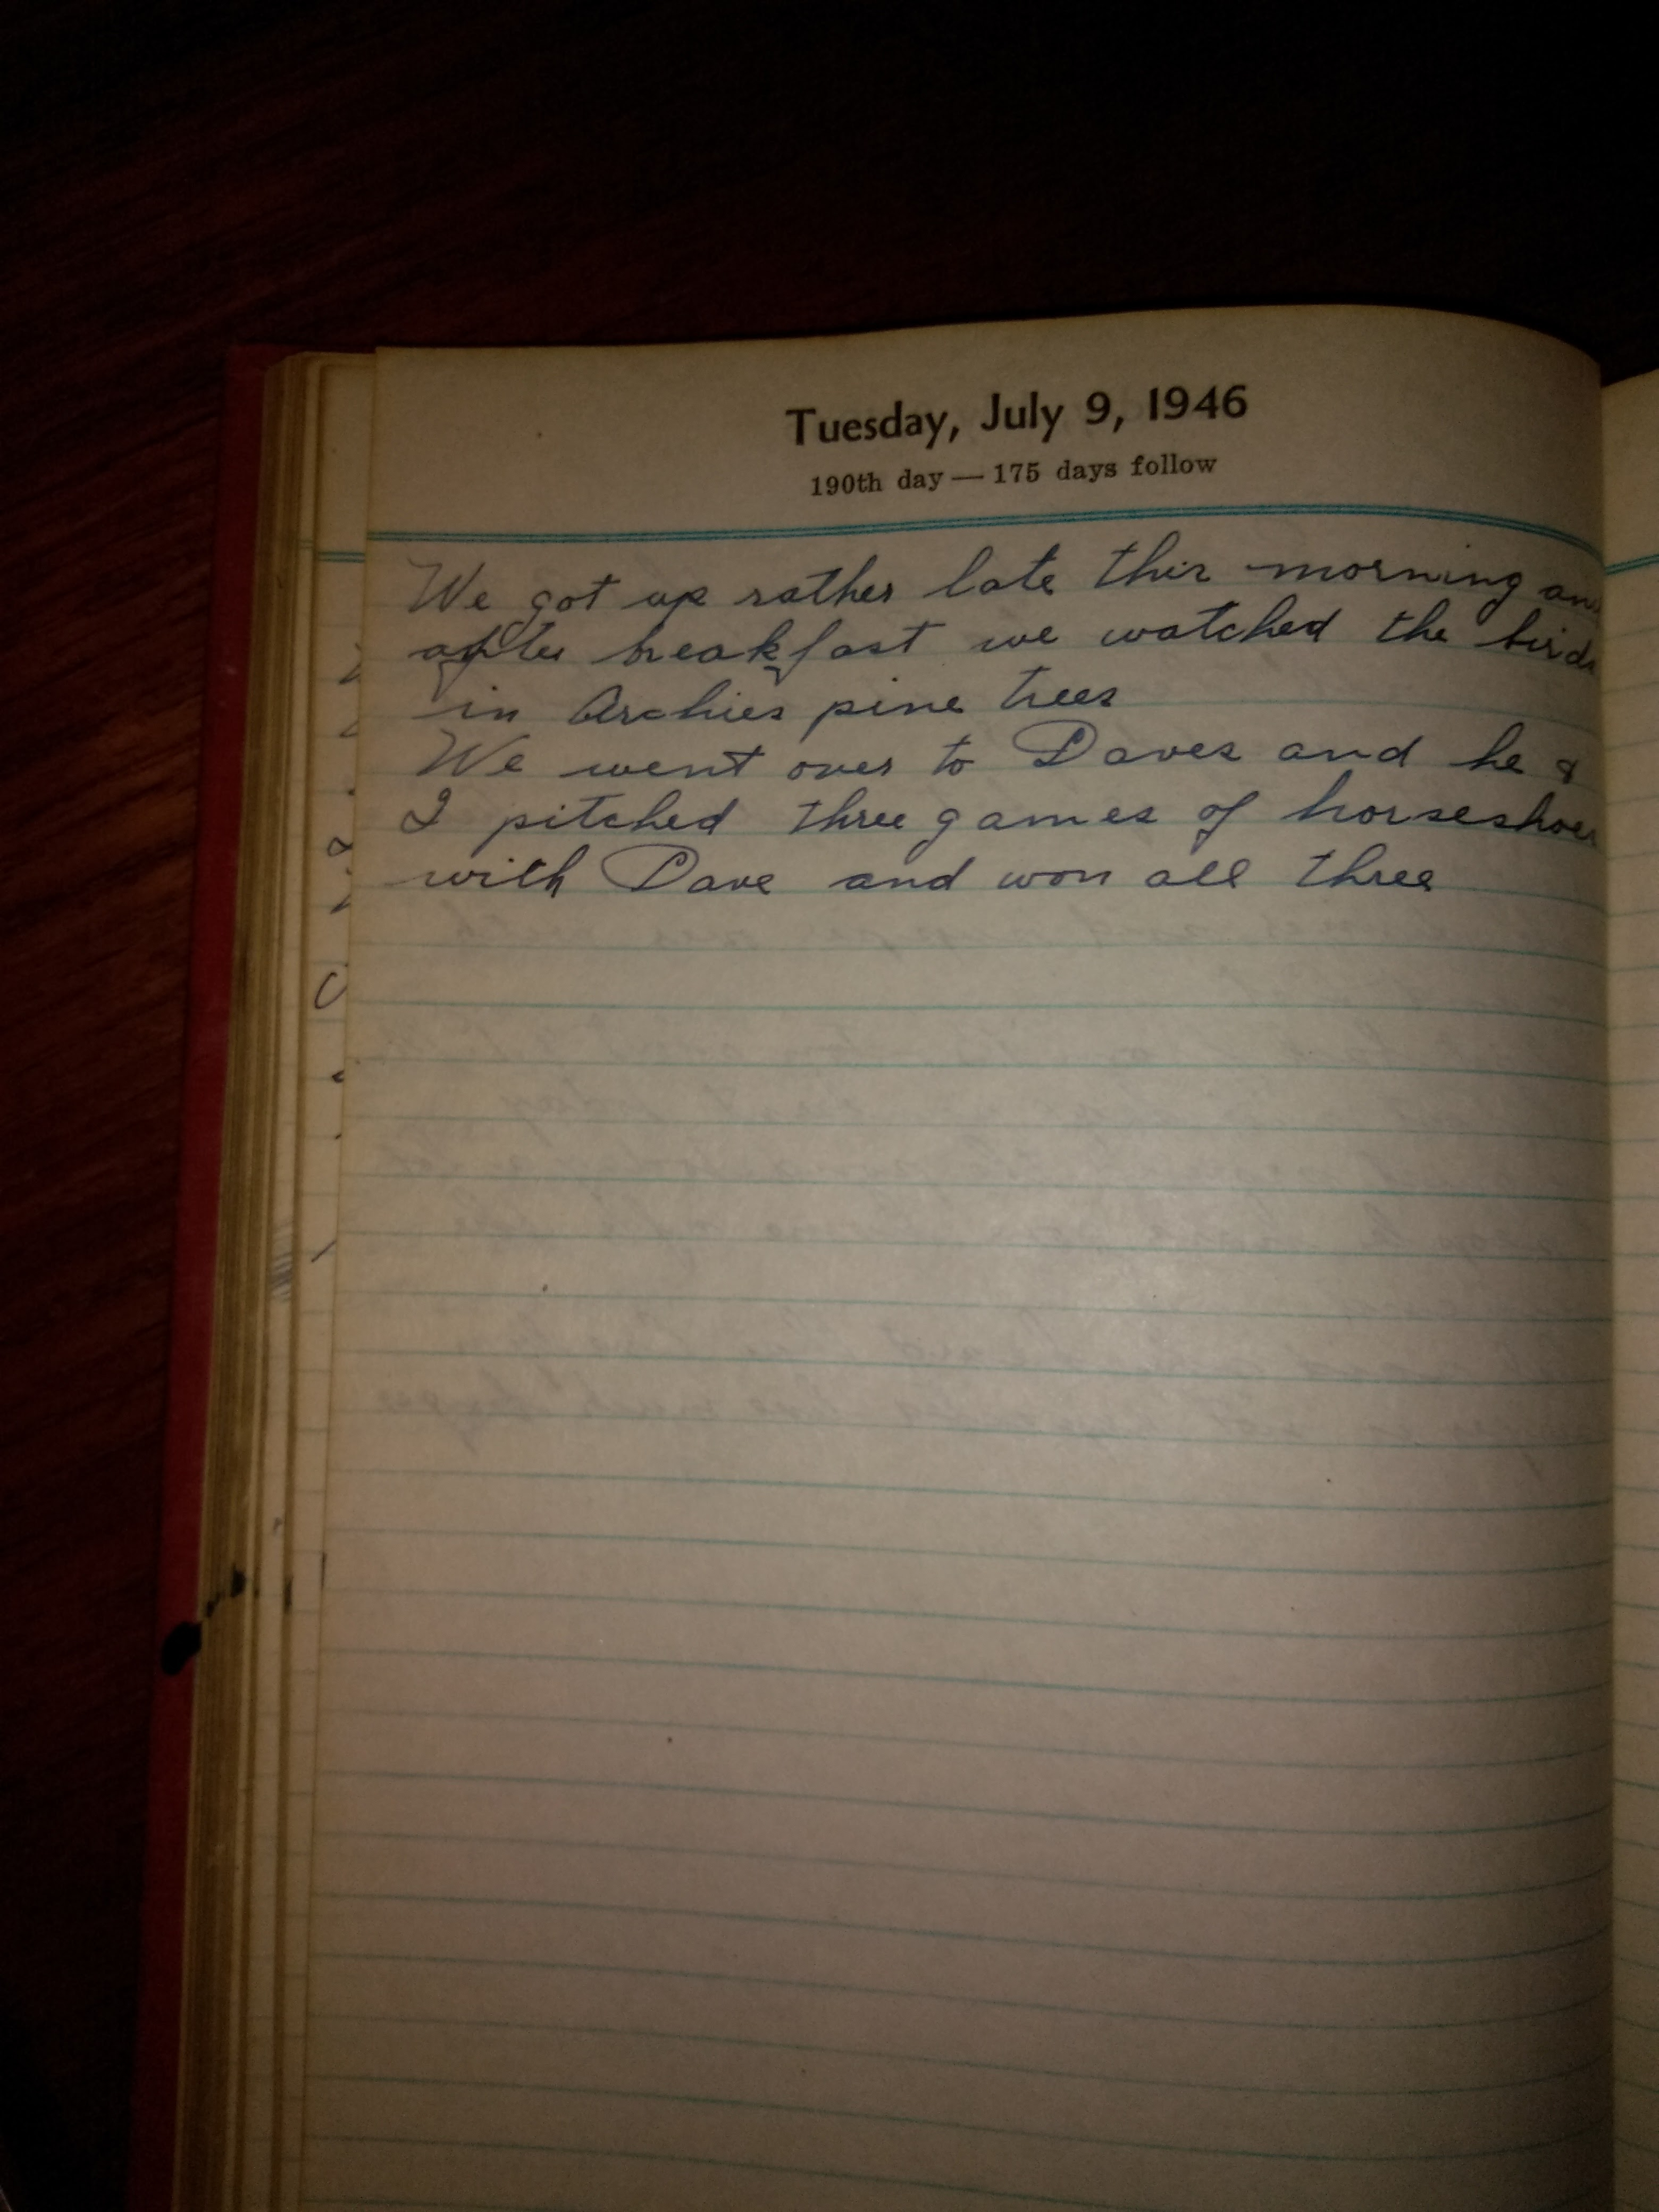 Tuesday, July 9, 1946
190th day — 175 days follow
We got up rather late this morning and
after breakfast we watched the birds
in Archies pine trees
We went over to Daves and he &
I pitched three games of horseshoes
with Dave and won all three